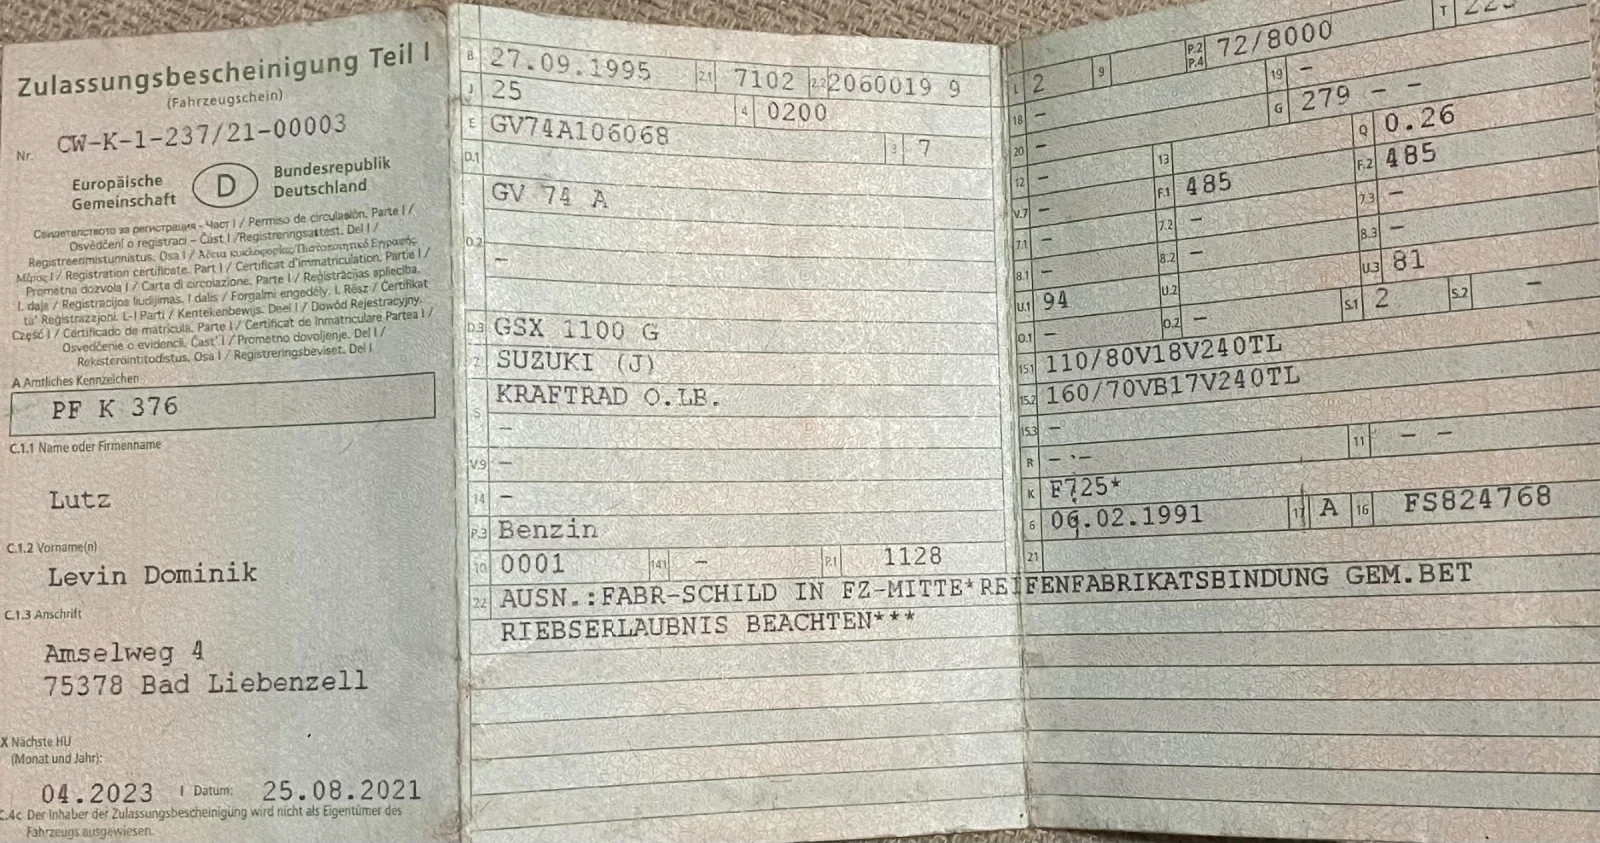 Zulassungsbescheinigung Teil I
(Fahrzeugschein)
Nr. CW-K-1-237/21-00003
Europäische Gemeinschaft D Bundesrepublik Deutschland
Свидетелство за регистрация - Част I / Permiso de circulación. Parte I /
Osvědčení o registraci - Část I / Registreringsattest. Del I /
Registreerimistunnistus. Osa I / Άδεια κυκλοφορίας/Πιστοποιητικό Εγγραφής
Μέρος I / Registration certificate. Part I / Certificat d'immatriculation. Partie I /
Prometna dozvola I / Carta di circolazione. Parte I / Reģistrācijas apliecība.
I. daļa / Registracijos liudijimas. I dalis / Forgalmi engedély. I. Rész / Ċertifikat
ta' Reġistrazzjoni. L-I Parti / Kentekenbewijs. Deel I / Dowód Rejestracyjny.
Część I / Certificado de matrícula. Parte I / Certificat de înmatriculare Partea I /
Osvedčenie o evidencii. Časť I / Prometno dovoljenje. Del I /
Rekisteröintitodistus. Osa I / Registreringsbeviset. Del I
A Amtliches Kennzeichen
PF K 376
C.1.1 Name oder Firmenname
Lutz
C.1.2 Vorname(n)
Levin Dominik
C.1.3 Anschrift
Amselweg 4
75378 Bad Liebenzell
X Nächste HU
(Monat und Jahr):
04.2023 I Datum: 25.08.2021
C.4c Der Inhaber der Zulassungsbescheinigung wird nicht als Eigentümer des
Fahrzeugs ausgewiesen.
B 27.09.1995 2.1 7102 2.2 2060019 9
J 25 4 0200
E GV74A106068 3 7
D.1
GV 74 A
D.2
-
D.3 GSX 1100 G
2 SUZUKI (J)
5 KRAFTRAD O.LB.
-
V.9 -
14 -
P.3 Benzin
10 0001 14.1 - P.1 1128
22 AUSN.:FABR-SCHILD IN FZ-MITTE*REIFENFABRIKATSBINDUNG GEM.BET
RIEBSERLAUBNIS BEACHTEN***
L 2 9 P.2 P.4 72/8000 T
18 - 19 -
20 - G 279 - -
12 - 13 Q 0.26
V.7 - F.1 485 F.2 485
7.1 - 7.2 - 7.3 -
8.1 - 8.2 - 8.3 -
U.1 94 U.2 U.3 81
O.1 - O.2 - S.1 2 S.2 -
15.1 110/80V18V240TL
15.2 160/70VB17V240TL
15.3 -
R - - 11 - -
K F725*
6 06.02.1991 17 A 16 FS824768
21